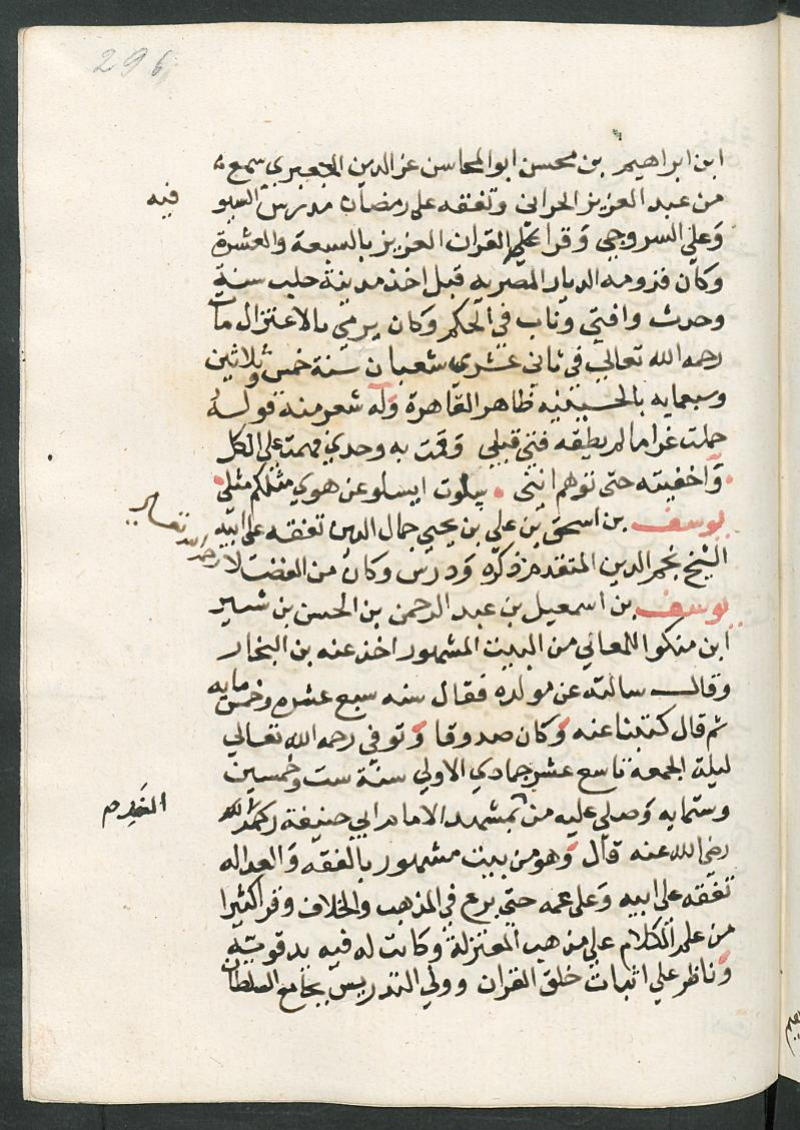 296
ابن ابراهيم بن محسن ابو المحاسن عز الدين الجعبري سمع
من عبد العزيز الحراني وتفقه على رمضان مدرس السيو
فيه
وعلي السروجي وقرا على القران العزيز بالسبعة والعشرة
وكان قدومه الديار المصريه قبل اخذ مدينة حلب سنة
وحدث وافتي وناب في الحكم وكان يرمي بالاعتزال مات
رحمه الله تعالي في ثاني عشري شعبان سنة خمس وثلاثين
وسبعمايه بالحسينيه ظاهر القاهرة وله شعر منه قوله
حملت غراما لم يطقه فتي قبلي وقمت به وحدي فهمت علي الكل
واخفيته حتى توهم انني سلوت ايسلو عن هوي مثلكم مثلي
يوسف بن اسحق بن علي بن يحيي جمال الدين تفقه على ابيه
الشيخ نجم الدين المتقدم ذكره ودرس وكان من الفضلا رحمه الله تعالي
يوسف بن اسمعيل بن عبد الرحمن بن الحسن بن شبير
ابن منكوا اللمعاني من البيت المشهور اخذ عنه بن النجار
وقال سالته عن مولده فقال سنه سبع عشره وخمس مايه
ثم قال كتبنا عنه وكان صدوقا وتوفي رحمه الله تعالي
ليلة الجمعه تاسع عشر جمادي الاولي سنة ست وخمسين
وستمايه وصلي عليه من بمشهد الامام ابي حنيفة رحمه الله
رضي الله عنه قال وهو من بيت مشهور بالفقه والعداله
تفقه على ابيه وعلى عمه حتي برع في المذهب والخلاف وقرا كثيرا
من علم الكلام علي مذهب المعتزلة وكانت له فيه يد قويته
وناظر علي اثبات خلق القران وولي التدريس بجامع السلطان